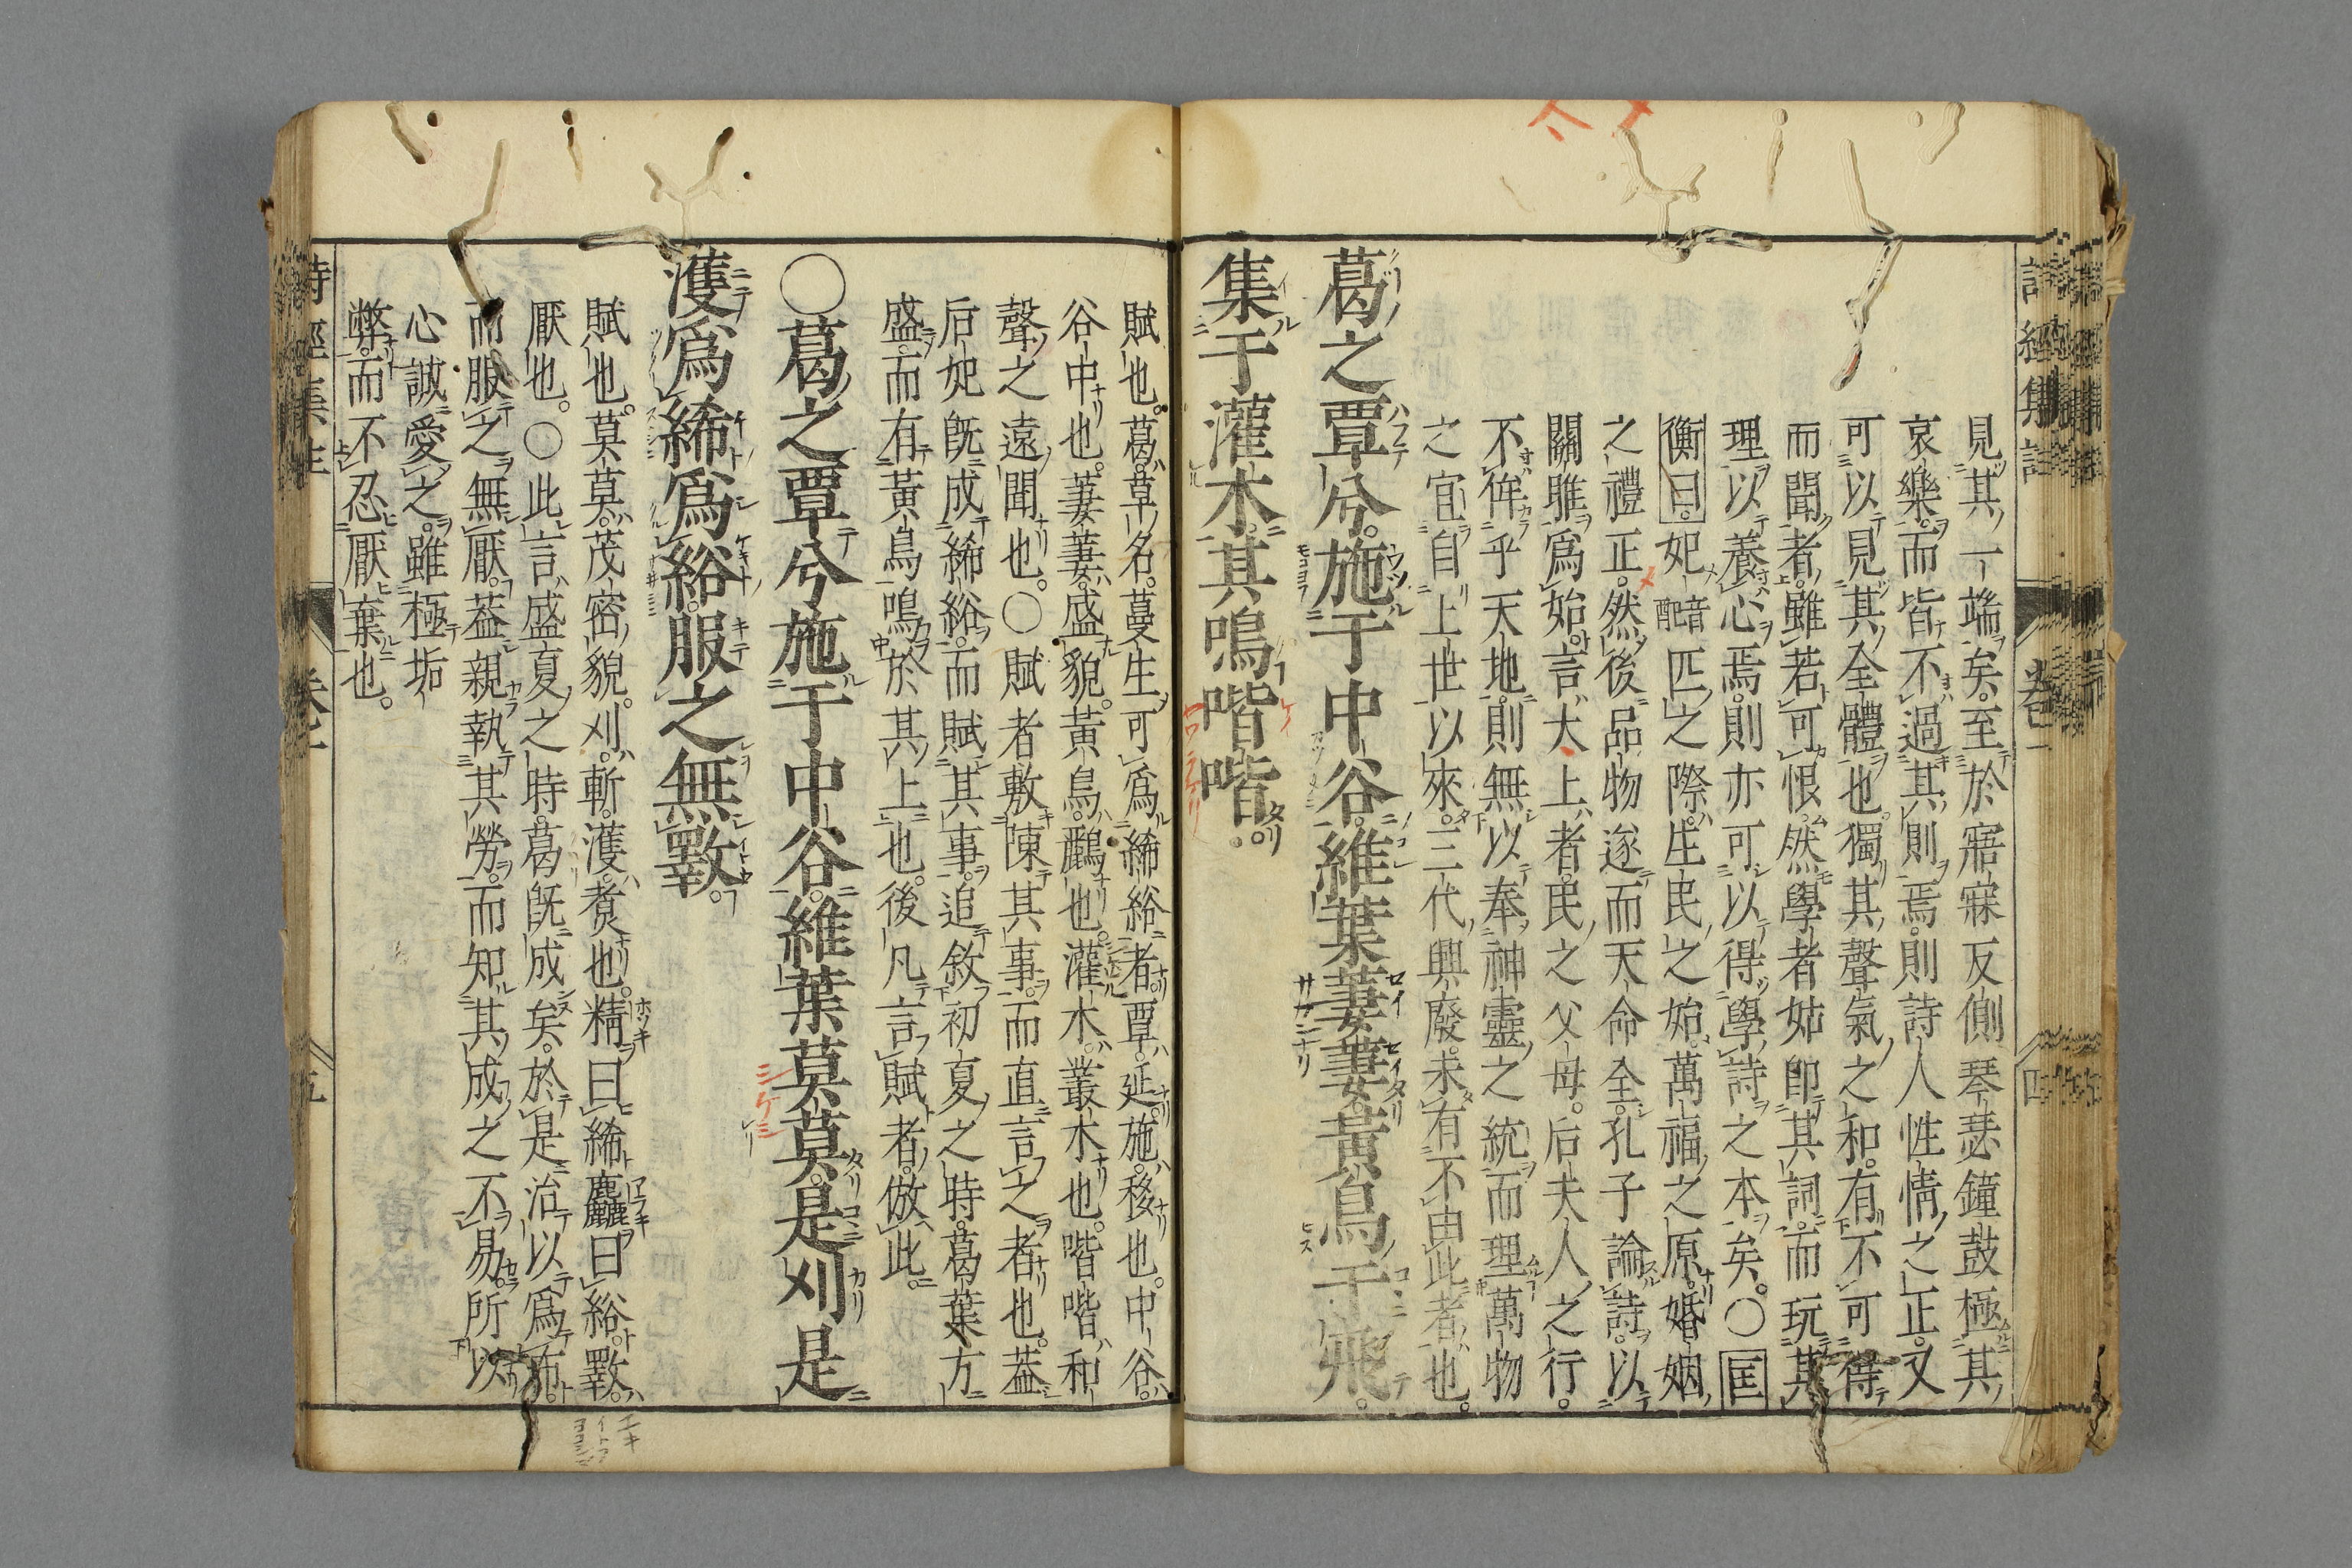 見其一端矣。至於寤寐反側琴瑟鐘鼓極其
哀樂。而皆不過其則焉。則詩人性情之正。又
可以見其全體也。獨其聲氣之和。有不可得
而聞者。雖若可恨。然學者姑即其詞。而玩其
理以養心焉。則亦可以得學詩之本矣。〇匡
衡曰。妃音配匹之際。生民之始。萬福之原。婚姻
之禮正。然後品物遂而天命全。孔子論詩。以
關雎爲始。言大上者。民之父母。后夫人之行。
不侔乎天地。則無以奉神靈之統。而理萬物
之宜。自上世以來。三代興廢。未有不由此者也。
葛之覃兮。施于中谷。維葉萋萋。黃鳥于飛。
集于灌木。其鳴喈喈。
賦也。葛。草名。蔓生可爲絺綌者。覃。延。施。移也。中谷。
谷中也。萋萋。盛貌。黃鳥。鸝也。灌木。叢木也。喈喈。和
聲之遠聞也。〇賦者敷陳其事。而直言之者也。葢
后妃旣成絺綌。而賦其事。追敘初夏之時。葛葉方
盛。而有黃鳥鳴於其上也。後凡言賦者。倣此。
〇葛之覃兮施于中谷。維葉莫莫。是刈是
濩。爲絺爲綌。服之無斁。
賦也。莫莫。茂密貌。刈。斬。濩。煑也。精曰絺。麤曰綌。斁。
厭也。〇此言盛夏之時。葛旣成矣。於是治以爲布。
而服之無厭。葢親執其勞。而知其成之不易。所以
心誠愛之。雖極垢
弊。而不忍厭棄也。
詩經集註
卷一
四
詩經集註
卷一
五